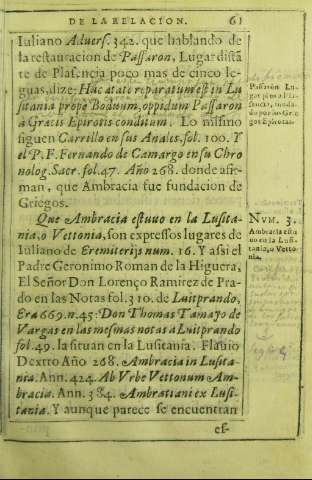 DE LA RELACION. 61
Iuliano Adversf. 342. que hablando de
la restauracion de Passaron, Lugar distã
te de Plasencia poco mas de cinco le-
guas, dize: Hac ætate reparatum est in Lu
sitania prope Boduum, oppidum Passaron
à Græcis Epirotis conditum. Lo mismo
siguen Carrillo en sus Anales. fol. 100. Y
el P. F. Fernando de Camargo en su Chro
nolog. Sacr. fol. 47. Año 268. donde afir-
man, que Ambracia fue fundacion de
Griegos.
Que Ambracia estuvo en la Lusita-
nia, o Vettonia, son expressos lugares de
Iuliano de Eremiterijs num. 16. Y assi el
Padre Geronimo Roman de la Higuera,
El Señor Don Lorenço Ramirez de Pra-
do en las Notas fol. 310. de Luitprando,
Era 669. n. 45. Don Thomas Tamayo de
Vargas en las mesmas notas à Luitprando
fol. 49. la situan en la Lusitania. Flauio
Dextro Año 268. Ambracia in Lusita
nia. Ann. 424. Ab Vrbe Vettonum Am-
bracia. Ann. 384. Ambratiani ex Lusi-
tania. Y aunque parece se encuentran
es-
Passarõ Lu-
gar
Epirotas.
NVM. 3.
Ambracia estu
uo en la Lusi-
tania, o Vetto-
nia.